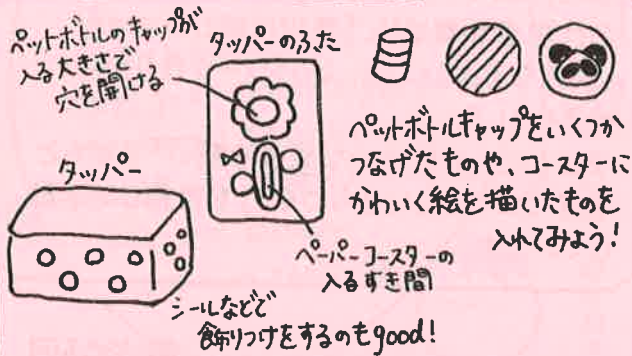 ペットボトルのキャップが
入る大きさで
穴を開ける
タッパーのふた
タッパー
ペットボトルキャップをいくつか
つなげたものや、コースターに
かわいく絵を描いたものを
入れてみよう!
ペーパーコースターの
入るすき間
シールなどで
飾りつけをするのもgood!